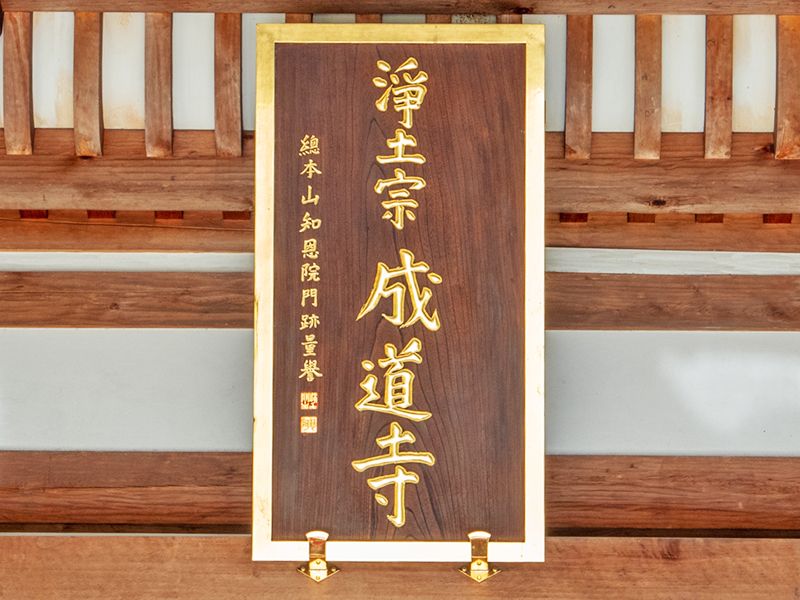 淨土宗 成道寺
總本山知恩院門跡量譽